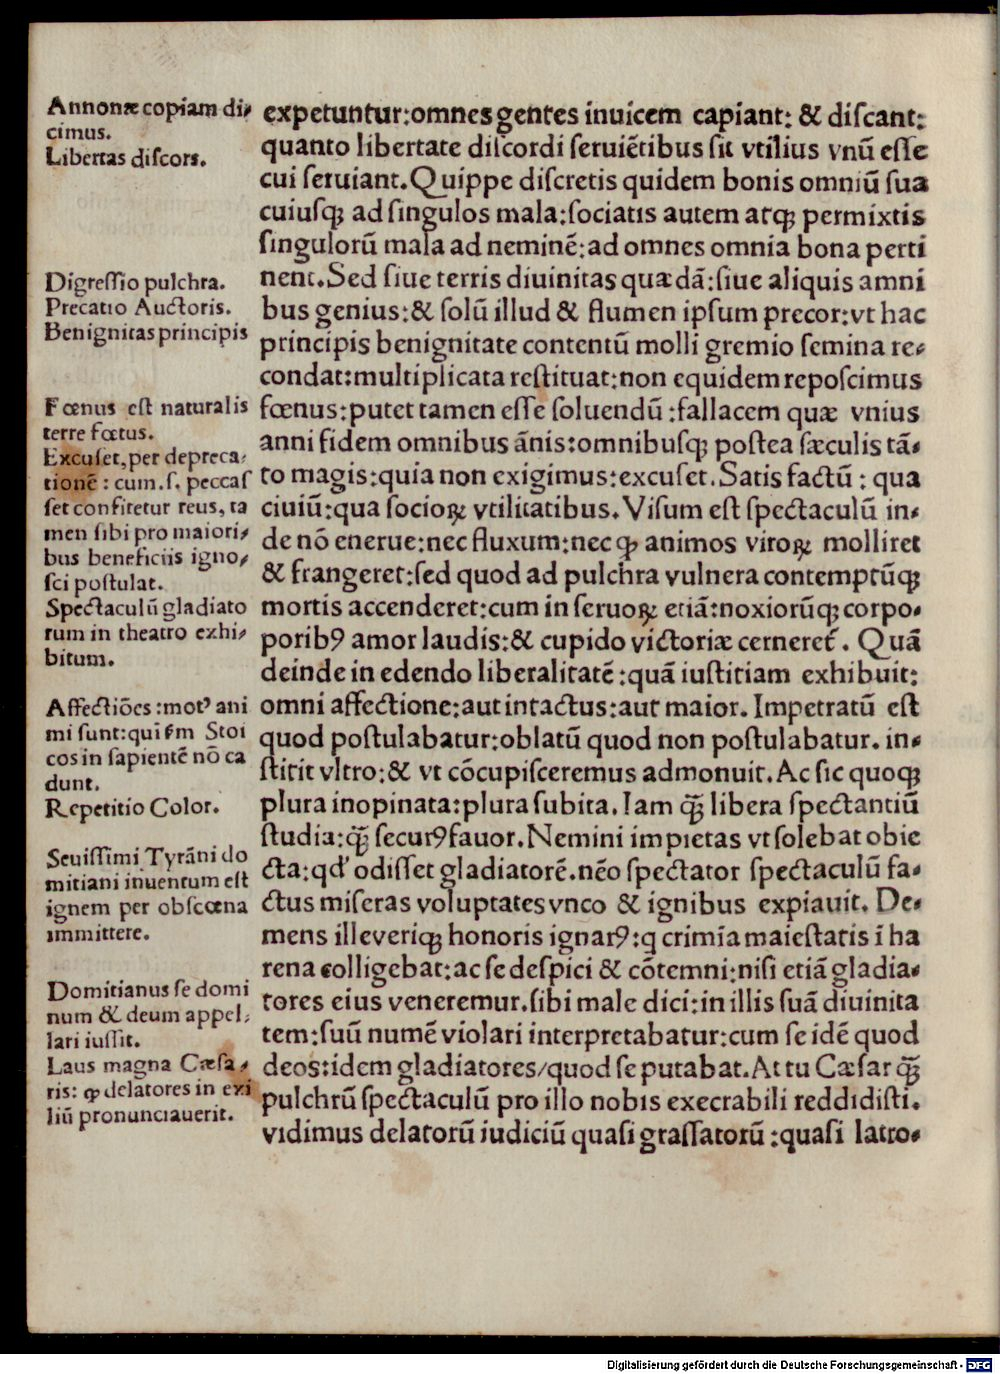 Annonæ copiam di⸗
cimus.
Libertas diſcors.
Digreſſio pulchra.
Precatio Auctoris.
Benignitas principis
Fœnus eſt naturalis
terre fœtus.
Excuſet, per depreca⸗
tionē : cum .ſ. peccaſ
ſet confitetur reus, ta
men ſibi pro maiori⸗
bus beneficiis igno⸗
ſci poſtulat.
Spectaculū gladiato
rum in theatro exhi⸗
bitum.
Affectiōes : motꝰ ani
mi ſunt: qui ẜm Stoi
cos in ſapientē nō ca
dunt.
Repetitio Color.
Seuiſſimi Tyrāni do
mitiani inuentum eſt
ignem per obſcœna
immittere.
Domitianus ſe domi
num & deum appel⸗
lari iuſſit.
Laus magna Cæſa⸗
ris: ꝙ delatores in exi
liū pronunciauerit.
expetuntur: omnes gentes inuicem capiant: & diſcant:
quanto libertate diſcordi ſeruiētibus ſit vtilius vnū eſſe
cui ſeruiant. Quippe diſcretis quidem bonis omniū ſua
cuiuſqꝫ ad ſingulos mala: ſociatis autem atqꝫ permixtis
ſingulorū mala ad neminē: ad omnes omnia bona perti
nent. Sed ſiue terris diuinitas quædā: ſiue aliquis amni
bus genius: & ſolū illud & flumen ipſum precor: vt hac
principis benignitate contentū molli gremio ſemina re⸗
condat: multiplicata reſtituat: non equidem repoſcimus
fœnus: putet tamen eſſe ſoluendū : fallacem quæ vnius
anni fidem omnibus ānis: omnibuſqꝫ poſtea ſæculis tā⸗
to magis: quia non exigimus: excuſet. Satis factū : qua
ciuiū: qua socioꝝ vtilitatibus. Viſum eſt ſpectaculū in⸗
de nō enerue: nec fluxum: nec ꝙ animos viroꝝ molliret
& frangeret: ſed quod ad pulchra vulnera contemptūqꝫ
mortis accenderet: cum in ſeruoꝝ etiā: noxiorūqꝫ corpo⸗
poribꝰ amor laudis: & cupido victoriæ cerneret̄. Quā
deinde in edendo liberalitatē : quā iuſtitiam exhibuit:
omni affectione: aut intactus: aut maior. Impetratū eſt
quod poſtulabatur: oblatū quod non poſtulabatur. in⸗
ſtitit vltro: & vt cōcupiſceremus admonuit. Ac ſic quoqꝫ
plura inopinata: plura ſubita. Iam qꝫ̄ libera ſpectantiū
ſtudia: qꝫ̄ ſecurꝰ fauor. Nemini impietas vt ſolebat obie
cta: qd' odiſſet gladiatorē. nēo ſpectator ſpectaculū fa⸗
ctus miſeras voluptates vnco & ignibus expiauit. De⸗
mens ille veriqꝫ honoris ignarꝰ: q crimīa maieſtatis ī ha
rena colligebat: ac ſe deſpici & cōtemni: niſi etiā gladia⸗
tores eius veneremur. ſibi male dici: in illis ſuā diuinita
tem: ſuū numē violari interpretabatur: cum ſe idē quod
deos: idem gladiatores/ quod ſe putabat. At tu Cæſar qꝫ̄
pulchrū ſpectaculū pro illo nobis execrabili reddidiſti.
vidimus delatorū iudiciū quaſi graſſatorū : quaſi latro⸗
Digitalisierung gefördert durch die Deutsche Forschungsgemeinschaft - DFG